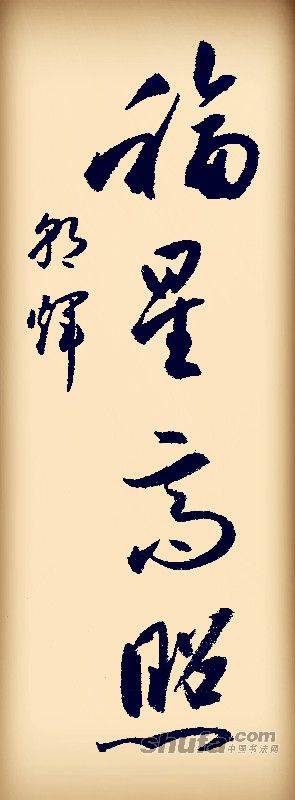 福星高照
朝辉
shufa.com
中国书法网